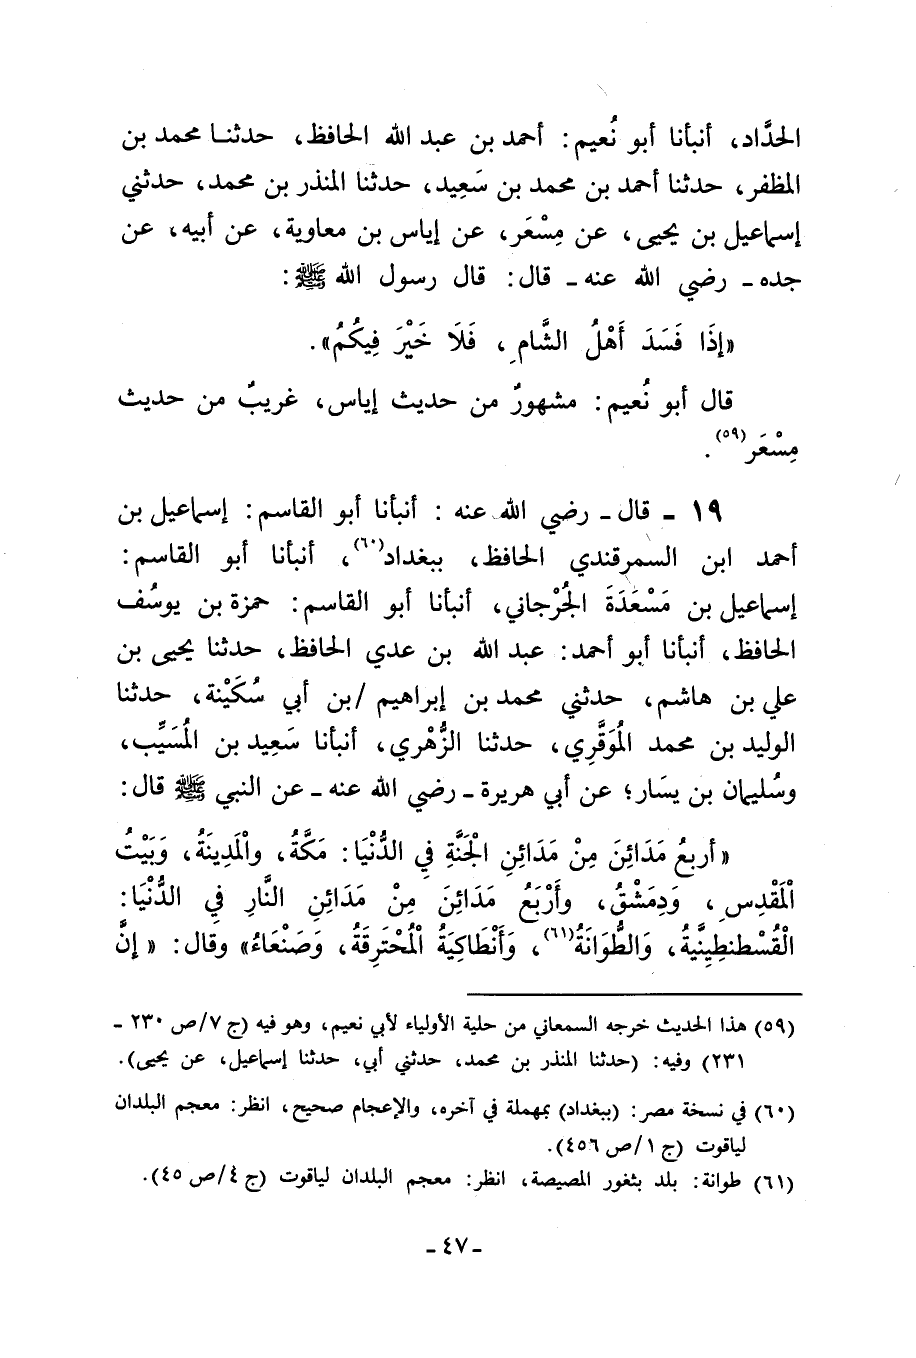 الحدَّاد، أنبأنا أبو نُعيم: أحمد بن عبد الله الحافظ، حدثنا محمد بن
المظفر، حدثنا أحمد بن محمد بن سَعِيد، حدثنا المنذر بن محمد، حدثني
إسماعيل بن يحيى، عن مِسْعَر، عن إياس بن معاوية، عن أبيه، عن
جده - رضي الله عنه - قال: قال رسول الله ﷺ:
«إذَا فَسَدَ أَهْلُ الشَّامِ، فَلَا خَيْرَ فِيكُمُ».
قال أبو نُعيم: مشهورٌ من حديث إياس، غريبٌ من حديث
مِسْعَر(٥٩).
١٩ - قال - رضي الله عنه : أنبأنا أبو القاسم: إسماعيل بن
أحمد ابن السمرقندي الحافظ، ببغداد(٦٠)، أنبأنا أبو القاسم:
إسماعيل بن مَسْعَدَةَ الجُرْجاني، أنبأنا أبو القاسم: حمزة بن يوسُف
الحافظ، أنبأنا أبو أحمد: عبد الله بن عدي الحافظ، حدثنا يحيى بن
علي بن هاشم، حدثني محمد بن إبراهيم /بن أبي سُكَيْنة، حدثنا
الوليد بن محمد المُوَقَّرِي، حدثنا الزُّهْري، أنبأنا سَعِيد بن المُسَيِّب،
وسُليمان بن يسَار؛ عن أبي هريرة - رضي الله عنه - عن النبي ﷺ قال:
«أربعُ مَدَائِنَ مِنْ مَدَائِنِ الْجَنَّةِ فِي الدُّنْيَا: مَكَّةُ، والْمَدِينَةُ، وَبَيْتُ
الْمَقْدِسِ، وَدِمَشْقُ، وأَرْبَعُ مَدَائِنَ مِنْ مَدَائِنِ النَّارِ فِي الدُّنْيَا:
الْقُسْطنطِينِيَّةُ، وَالطُّوَانَةُ(٦١)، وَأَنْطَاكِيَةُ الْمُحْتَرِقَةُ، وَصَنْعَاءُ» وقال: «إنَّ
(٥٩) هذا الحديث خرجه السمعاني من حلية الأولياء لأبي نعيم، وهو فيه (ج ٧/ص ٢٣٠ -
٢٣١) وفيه: (حدثنا المنذر بن محمد، حدثني أبي، حدثنا إسماعيل، عن يحيى).
(٦٠) في نسخة مصر: (ببغداد) بمهملة في آخره، والإعجام صحيح، انظر: معجم البلدان
لياقوت (ج ١/ص ٤٥٦).
(٦١) طوانة: بلد بثغور المصيصة، انظر: معجم البلدان لياقوت (ج ٤/ص ٤٥).
- ٤٧ -